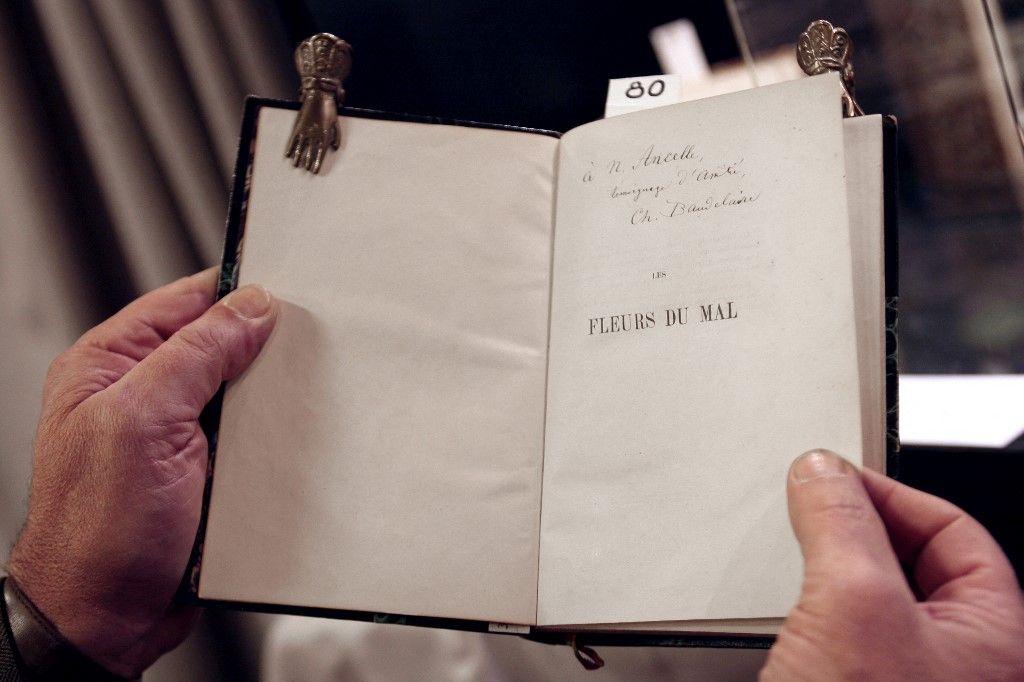 80
à N. Ancelle,
témoignage d'amitié,
Ch. Baudelaire
LES
FLEURS DU MAL